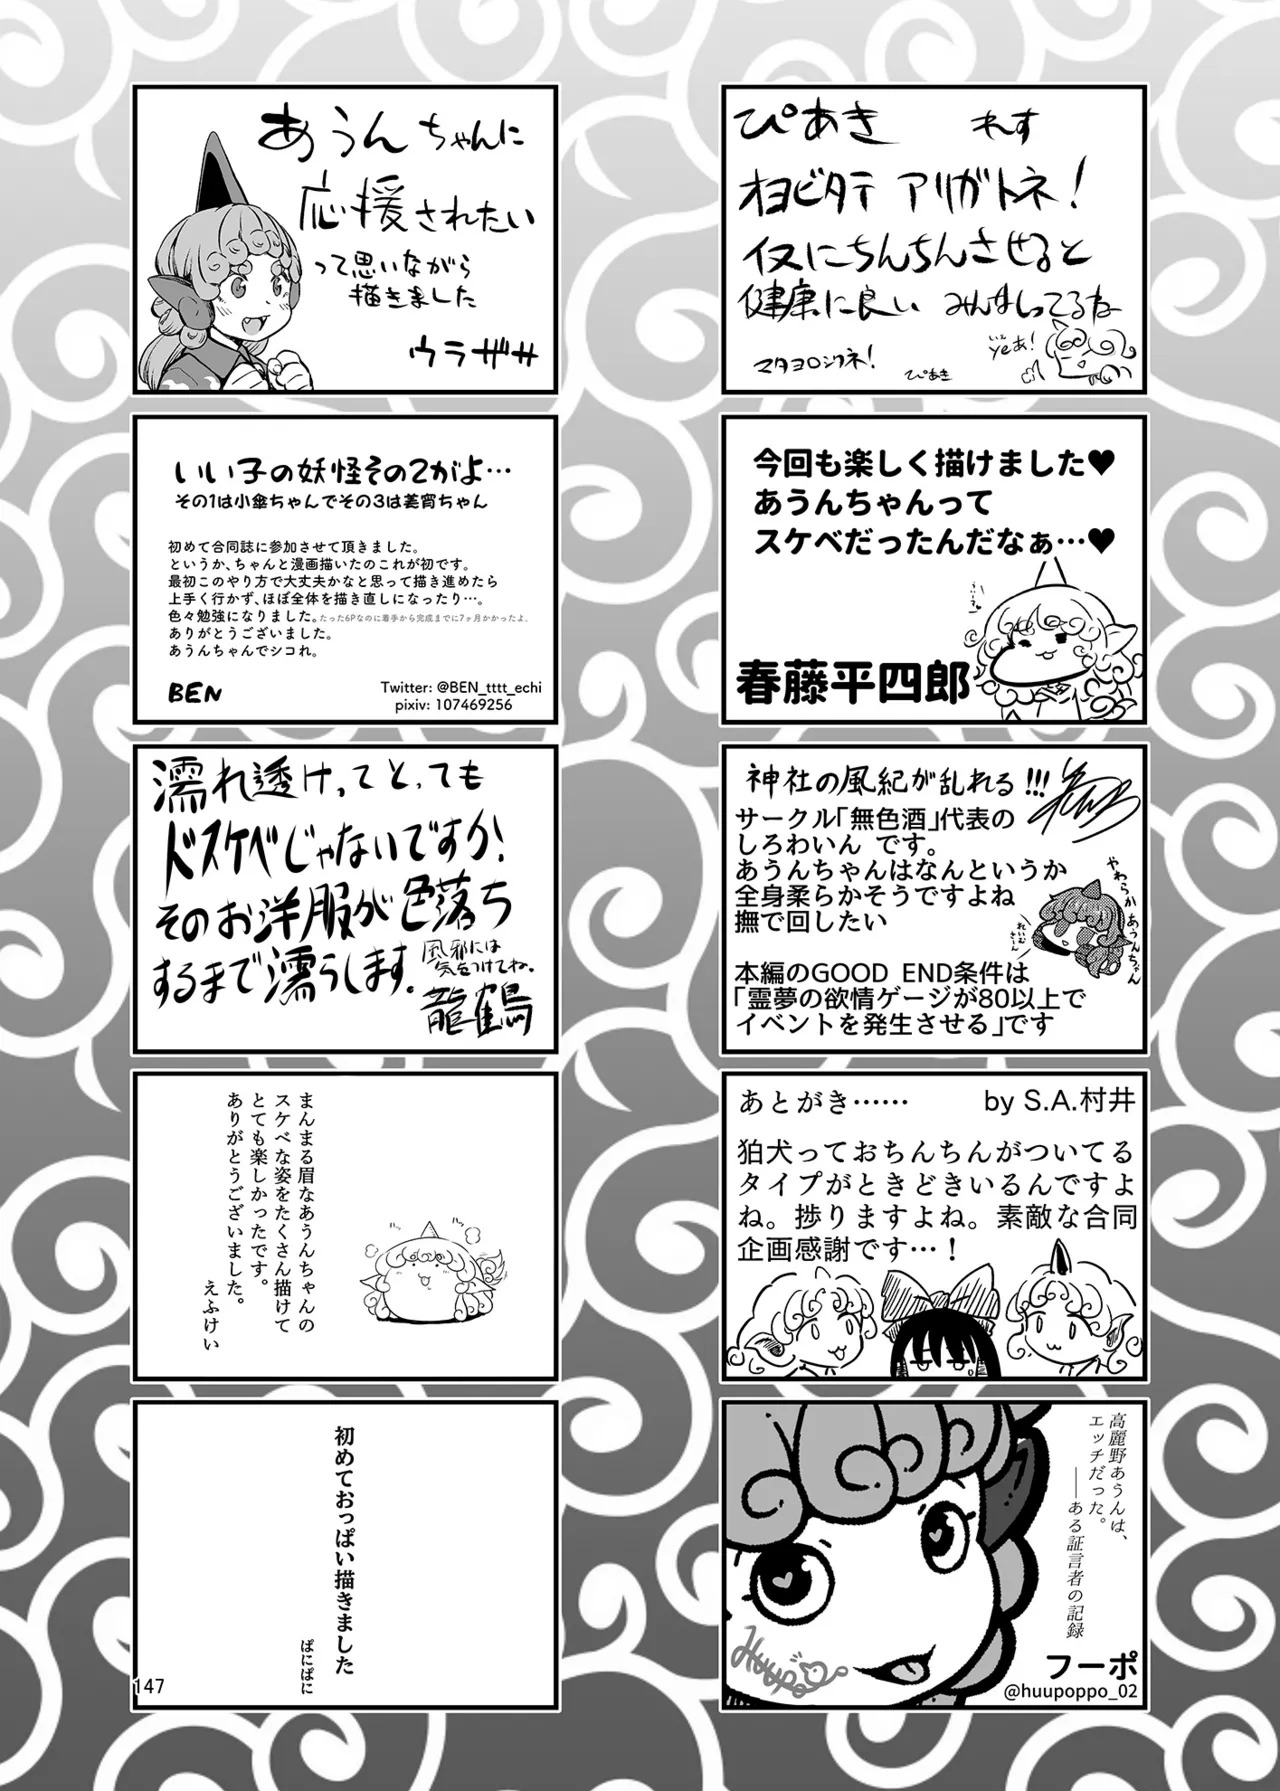 ぴあき れす
オヨビタテ アリガトネ!
イヌにちんちんさせると
健康に良い みんなしってるな
いえ
yeあ!
マタヨロシクネ!
ぴあき
今回も楽しく描けました♥
あうんちゃんって
スケベだったんだなぁ…♥
春藤平四郎
神社の風紀が乱れる!!!
サークル「無色酒」代表の
しろわいん です。
あうんちゃんはなんというか
全身柔らかそうですよね
撫で回したい
やわらかあうんちゃん
れいむさーん
本編のGOOD END条件は
「霊夢の欲情ゲージが80以上で
イベントを発生させる」です
あとがき…… by S.A.村井
狛犬っておちんちんがついてる
タイプがときどきいるんですよ
ね。捗りますよね。素敵な合同
企画感謝です…!
高麗野あうんは、
エッチだった。
──ある証言者の記録
Huupo
フーポ
@huupoppo_02
あうんちゃんに
応援されたい
って思いながら
描きました
ウラザサ
いい子の妖怪その2がよ…
その1は小傘ちゃんでその3は美宵ちゃん
初めて合同誌に参加させて頂きました。
というか、ちゃんと漫画描いたのこれが初です。
最初このやり方で大丈夫かなと思って描き進めたら
上手く行かず、ほぼ全体を描き直しになったり…。
色々勉強になりました。たった6Pなのに着手から完成までに7ヶ月かかったよ。
ありがとうございました。
あうんちゃんでシコれ。
BEN
Twitter: @BEN_tttt_echi
pixiv: 107469256
濡れ透けってとっても
ドスケベじゃないですか!
そのお洋服が色落ち
するまで濡らします。
風邪には
気をつけてね。
龍鶴
まんまる眉なあうんちゃんの
スケベな姿をたくさん描けて
とても楽しかったです。
ありがとうございました。
えふけい
初めておっぱい描きました
ぱにぱに
147